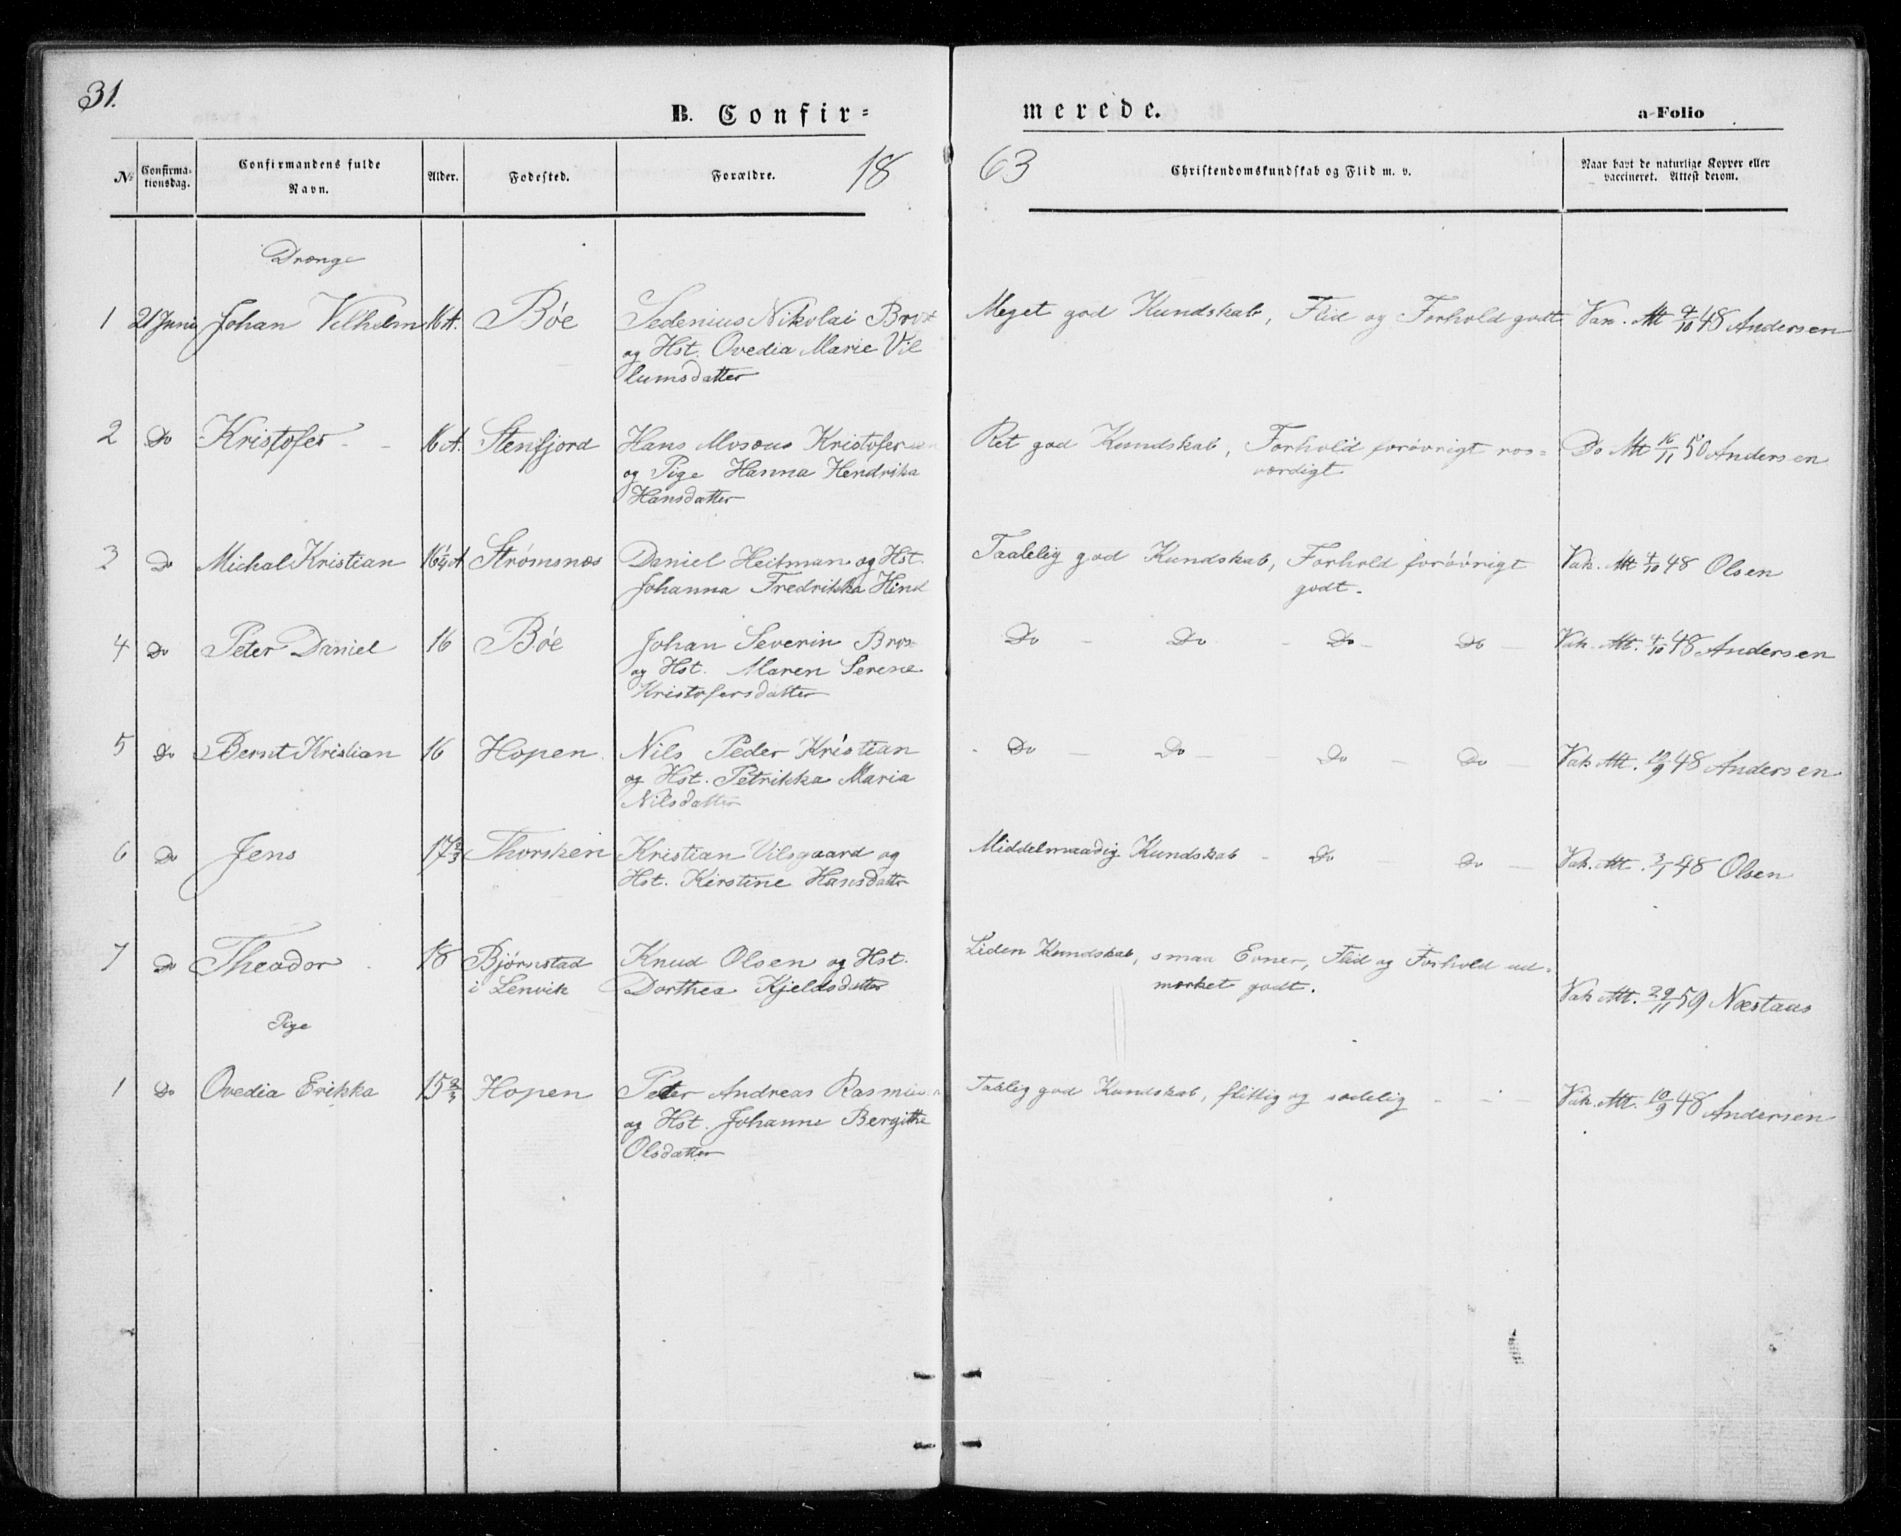 31.
B. Confir=
merede.
a-Folio
№
Confirma-
tionsdag.
Confirmandens fulde
Navn.
Alder.
Fødested.
Forældre.
18
63
Christendomskundskab og Flid m. v.
Naar havt de naturlige Kopper eller
vaccineret. Attest derom.
Drenge
1 21 Juni Johan Vilhelm 16 A. Bøe Sedenius Nikolai Meget god Kundskab, Flid og Forhold godt Vak. Att 4/10 48 Andersen
og Hst. Ovedia Marie Vil
lumsdatter
2 Do Kristofer 16 A. Stenfjord Hans Kristofersen Ret god Kundskab, Forhold forøvrigt ros= Do Att 16/11 50 Andersen
og Pige Hanna Hendrika værdigt
Hansdatter
3 Do Michal Kristian 16 1/4 A Strømsnæs Daniel Heitman og Hst. Taalelig god Kundskab, Forhold forøvrigt Vak. Att 4/10 48 Olsen
Johanna Fredrikka Hind godt.
4 Do Peter Daniel 16 Bøe Johan Severin Do - Do - Do - Do - Vak. Att. 4/10 48 Andersen
og Hst. Maren Serene
Kristofersdatter
5 Do Bernt Kristian 16 Hopen Nils Peder Kristian Do - Do - Do - Do - Vak Att. 10/9 48 Andersen
og Hst. Petrikka Maria
Nilsdatter
6 Do Jens 17 2/3 Thorsken Kristian Vilsgaard og Middelmaadig Kundskab - Do - Do - Vak. Att. 3/1 48 Olsen
Hst. Kirstine Hansdatter
7 Do Theodor 18 Bjørnstad Knud Olsen og Hst. Liden Kundskab, smaa Evner, Flid og Forhold ud=
i Lenvik Dorthea Kjeldsdatter mærket godt. Vak Att. 29/11 59
Pige
1 Do Ovedia Erikka 15 2/3 Hopen Peter Andreas Rasmus Taalig god Kundskab, flittig og sædelig - - - Vak. Att. 10/9 48 Andersen
og Hst. Johanne Bergitte
Olsdatter